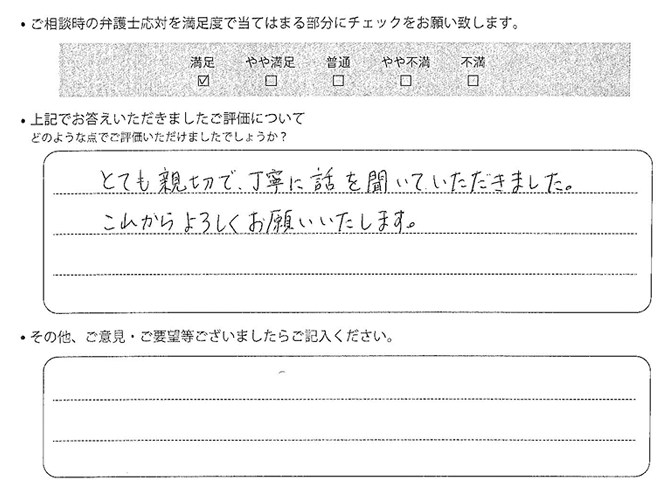 ・ご相談時の弁護士応対を満足度で当てはまる部分にチェックをお願い致します。
満足 やや満足 普通 やや不満 不満
☑ ☐ ☐ ☐ ☐
・上記でお答えいただきましたご評価について
どのような点でご評価いただけましたでしょうか？
とても親切で、丁寧に話を聞いていただきました。
これからよろしくお願いいたします。
・その他、ご意見・ご要望等ございましたらご記入ください。